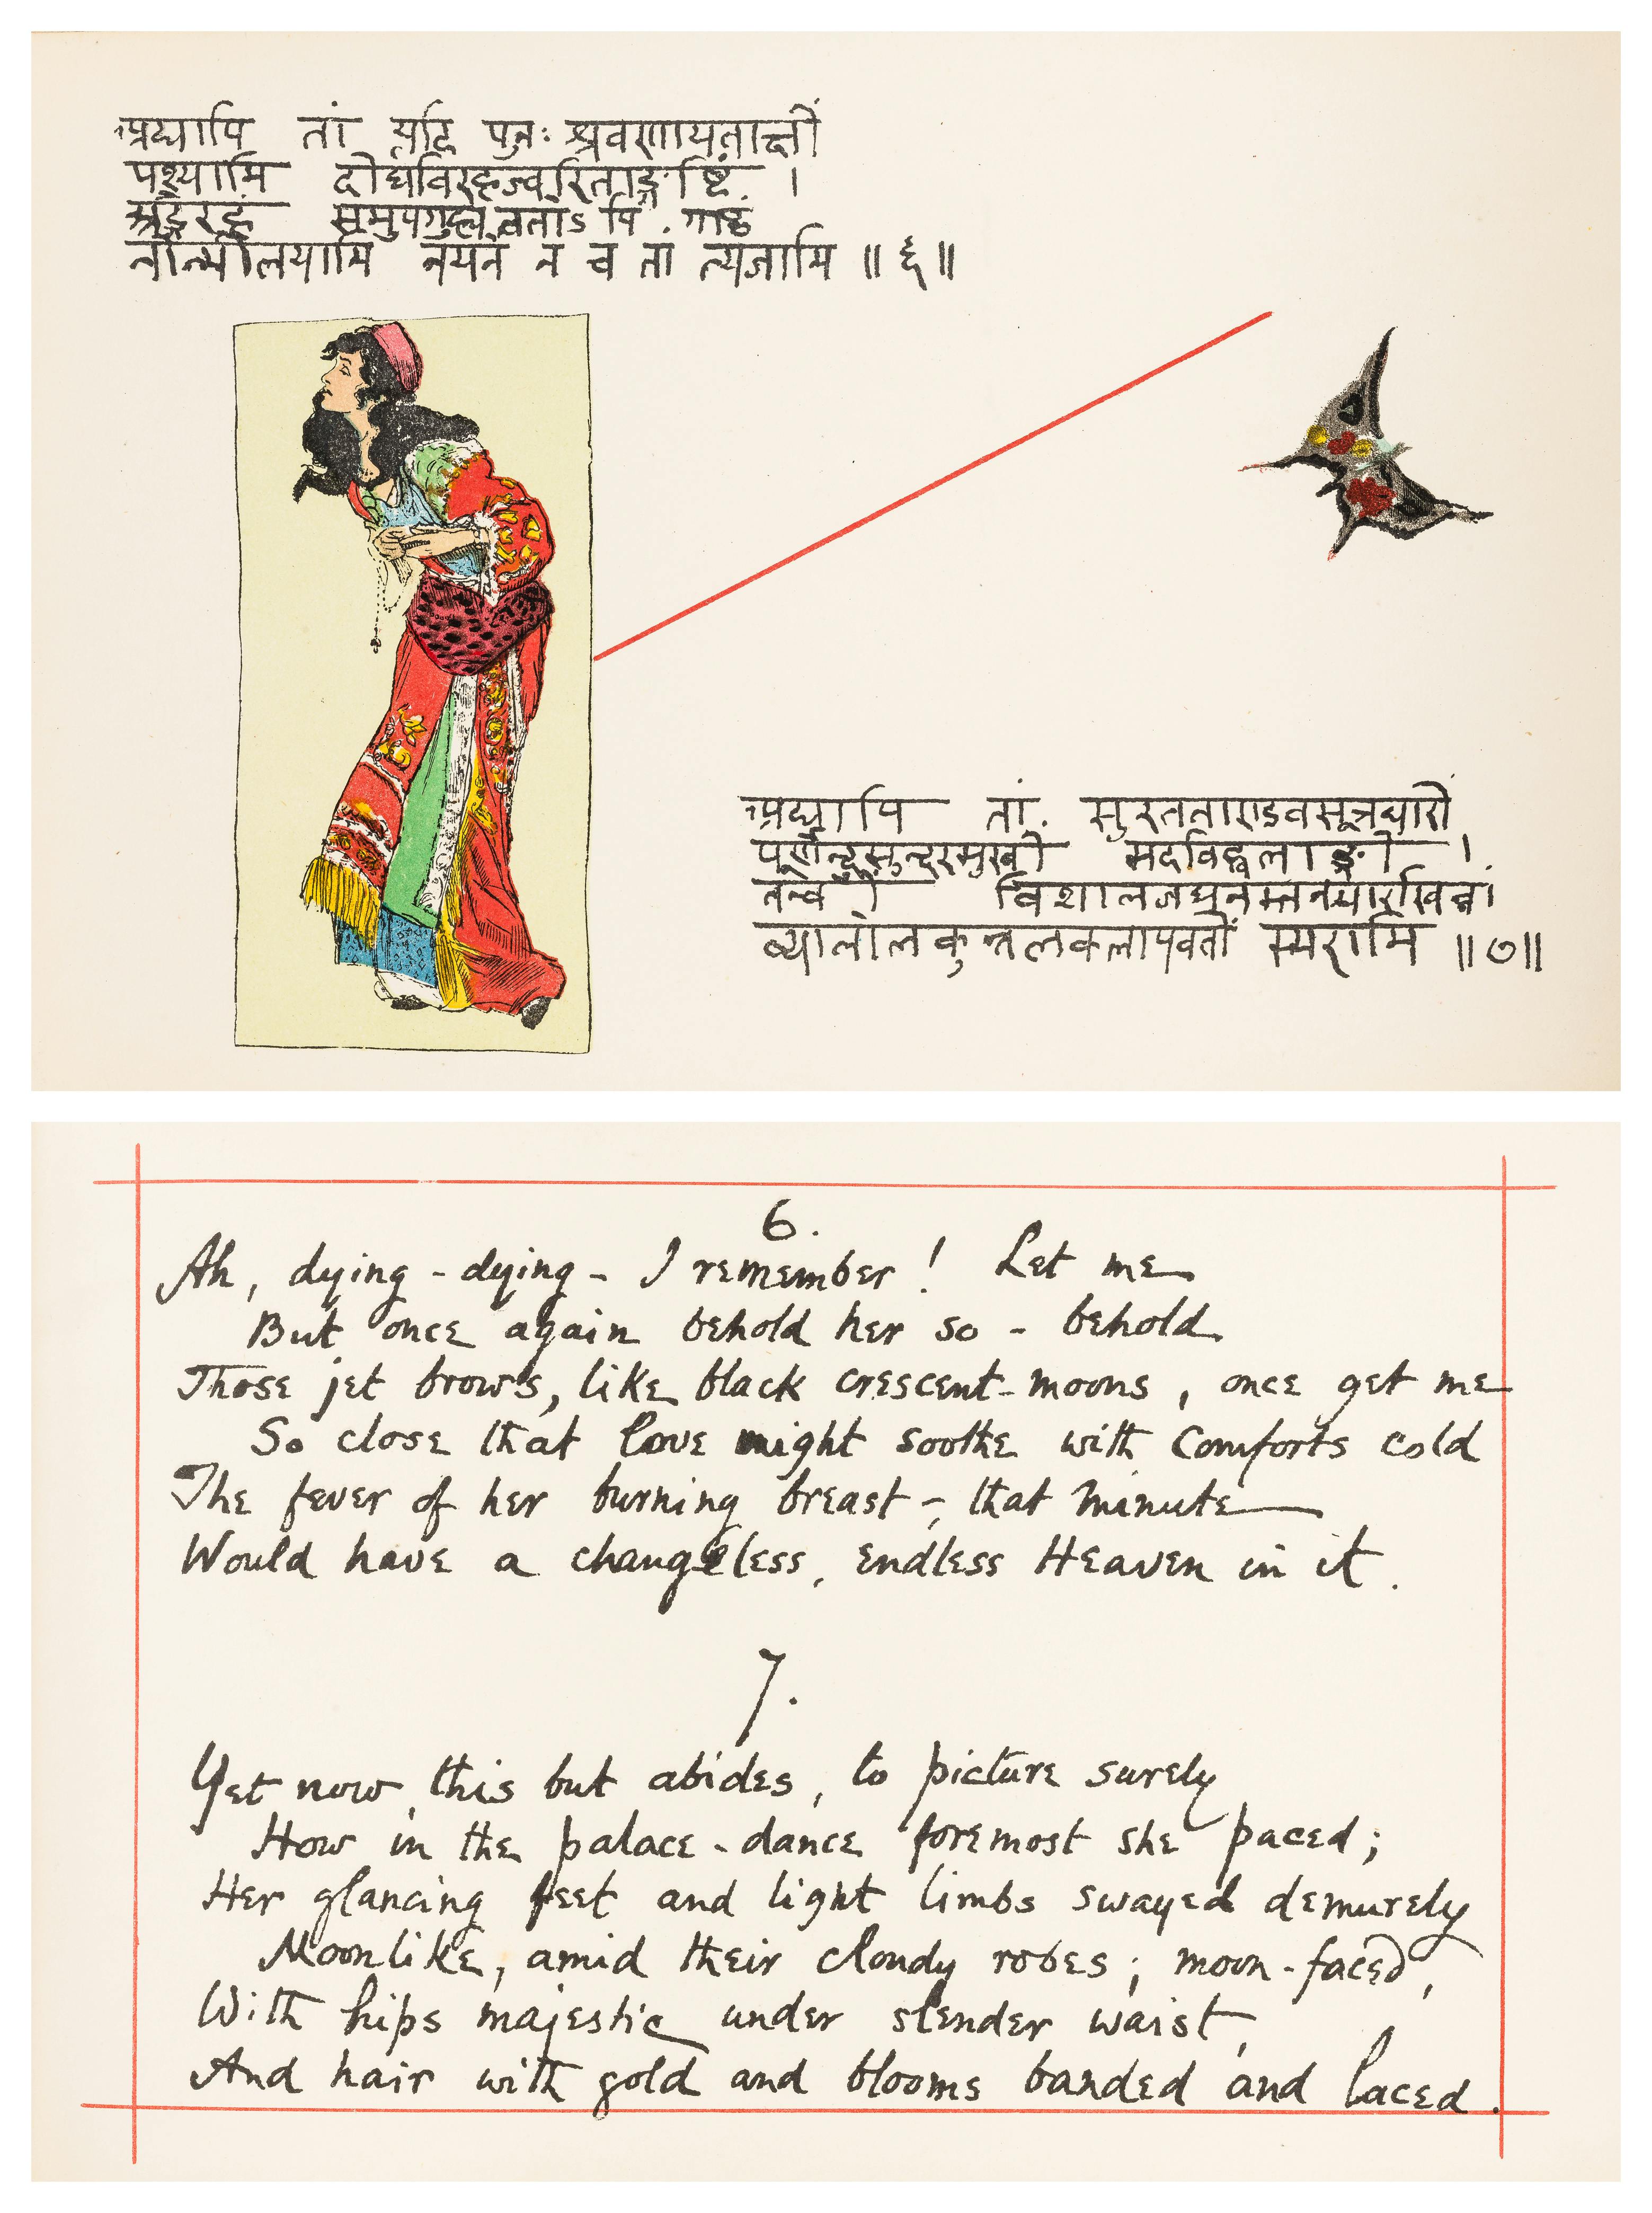 अद्यापि तां यदि पुनः श्रवणायताक्षीं
पश्यामि दीर्घविरहज्वरिताङ्गयष्टिं ।
अङ्गैरहं समुपगुह्य ततोऽपि गाढं
नोन्मीलयामि नयनं न च तां त्यजामि ॥ ६ ॥
अद्यापि तां सुरतताण्डवसूत्रधारीं
पूर्णेन्दुसुन्दरमुखीं मदविह्वलाङ्गीं ।
तन्वीं विशालजघनस्तनभारखिन्नां
व्यालोलकुन्तलकलापवतीं स्मरामि ॥ ७ ॥
6.
Ah, dying - dying - I remember! Let me
But once again behold her so - behold
Those jet brows, like black crescent-moons, once get me
So close that love might soothe with comforts cold
The fever of her burning breast - that minute
Would have a changeless, endless Heaven in it.
7.
Yet now, this but abides, to picture surely
How in the palace-dance foremost she paced;
Her glancing feet and light limbs swayed demurely
Moonlike, amid their cloudy robes; moon-faced,
With hips majestic under slender waist,
And hair with gold and blooms banded and laced.